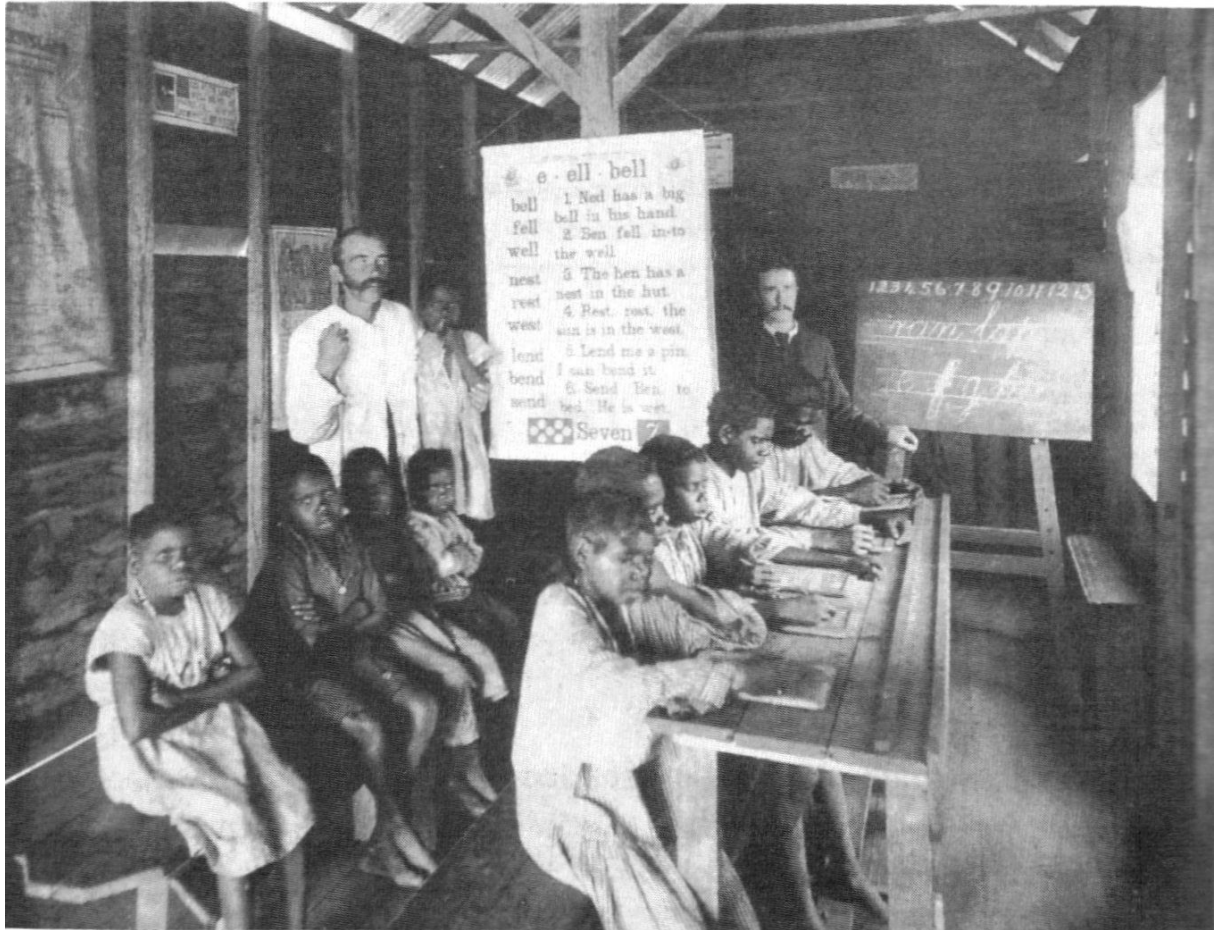 e - ell - bell
bell
fell
well
nest
rest
west
lend
bend
send
1. Ned has a big
bell in his hand.
2. Ben fell in-to
the well.
3. The hen has a
nest in the hut.
4. Rest, rest, the
sun is in the west.
5. Lend me a pin,
I can bend it.
6. Send Ben to
bed. He is wet.
Seven 7
1 2 3 4 5 6 7 8 9 10 11 12 13